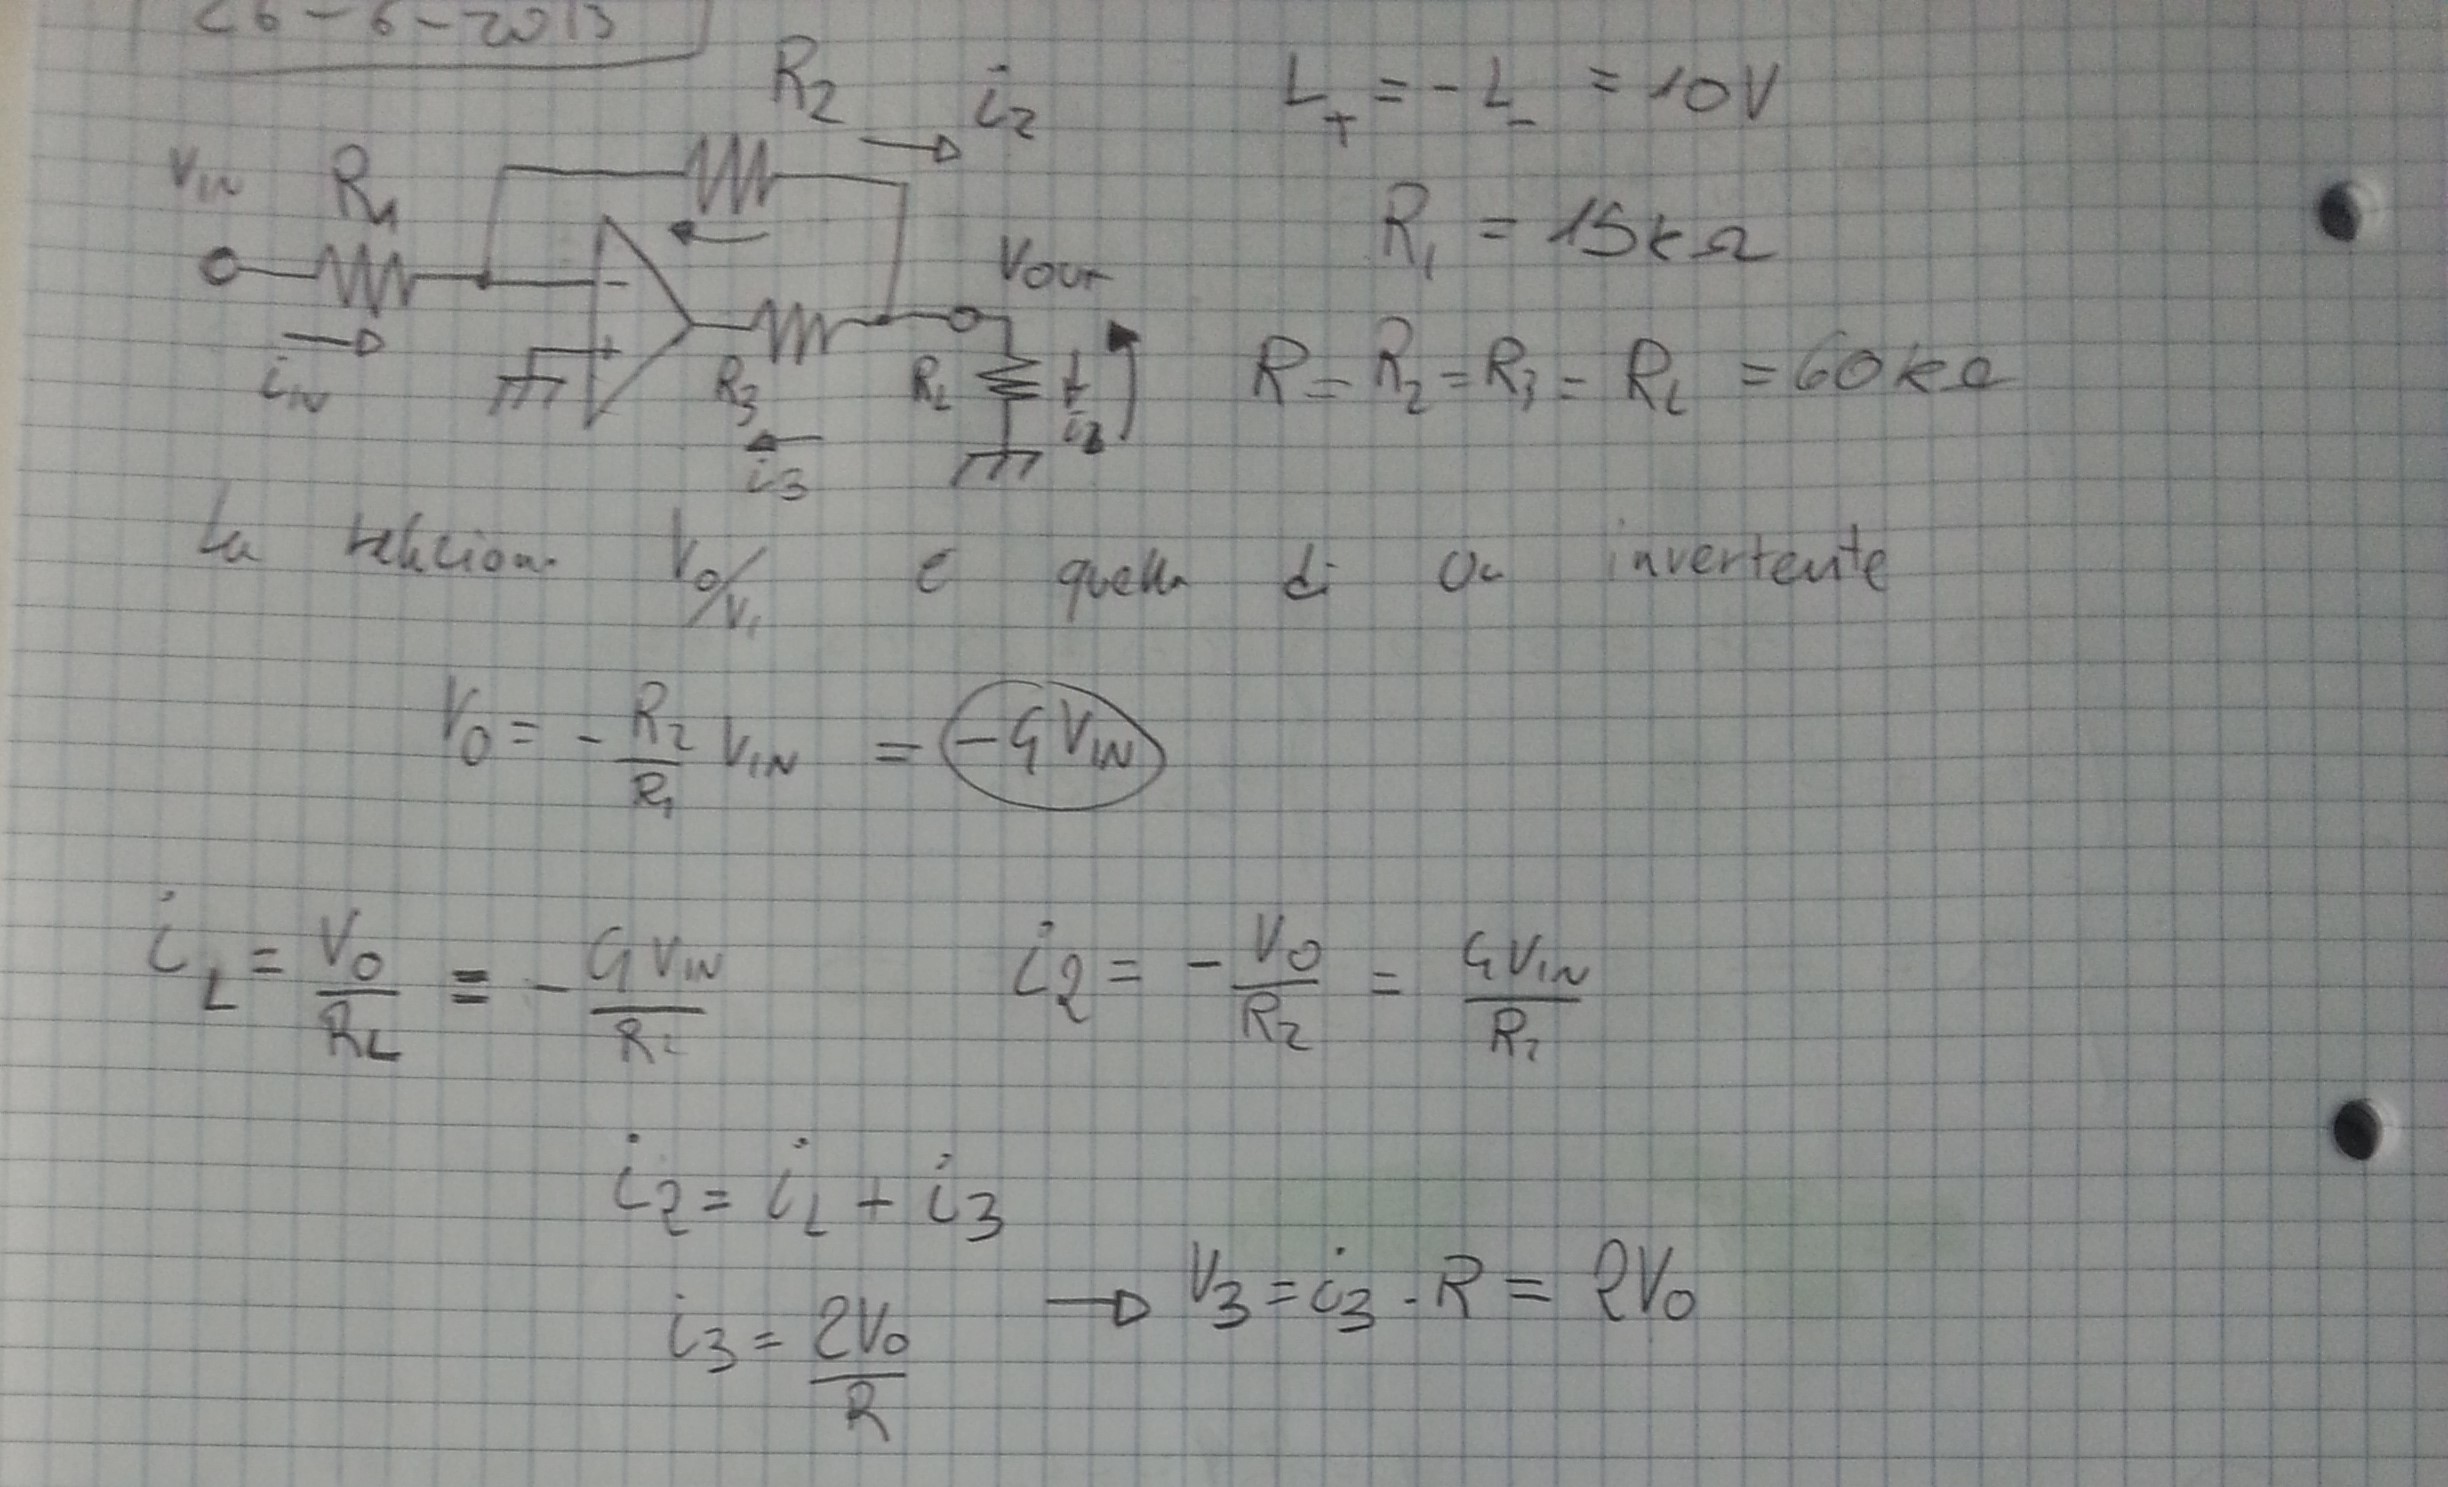 26-6-2013
R2 i2
VIN R1
L+ = -L- = 10V
R1 = 15kΩ
- Vout
iIN + R3 RL iL
i3
R = R2 = R3 = RL = 60kΩ
La relazione Vo/Vi è quella di un invertente
Vo = - R2/R1 VIN = -4VIN
iL = Vo/RL = - 4VIN/RL i2 = - Vo/R2 = 4VIN/R2
i2 = iL + i3
i3 = 2Vo/R → V3 = i3 · R = 2Vo